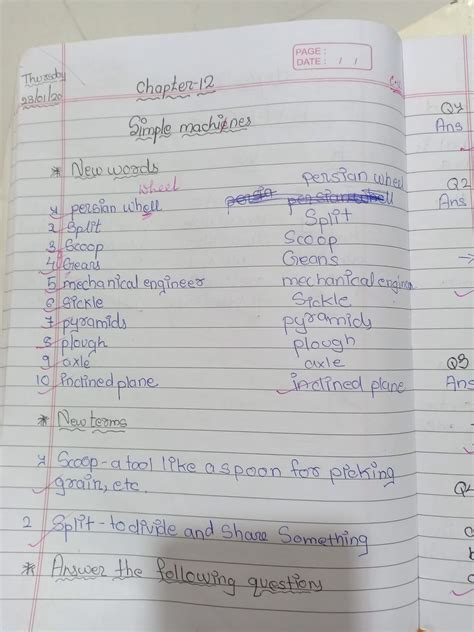 PAGE :
DATE : / /
Thursday
23/01/20
Chapter-12
Simple machines
* New words
wheel
1 persian whell persian wheel
2 Split Split
3 Scoop Scoop
4 Gears Gears
5 mechanical engineer mechanical
6 Sickle Sickle
7 pyramids pyramids
8 plough plough
9 axle axle
10 inclined plane inclined plane
* New terms
1 Scoop - a tool like a spoon for picking
grain, etc.
2 Split - to divide and share something
* Answer the following questions
Ans
Q2
Ans
Q3
Ans